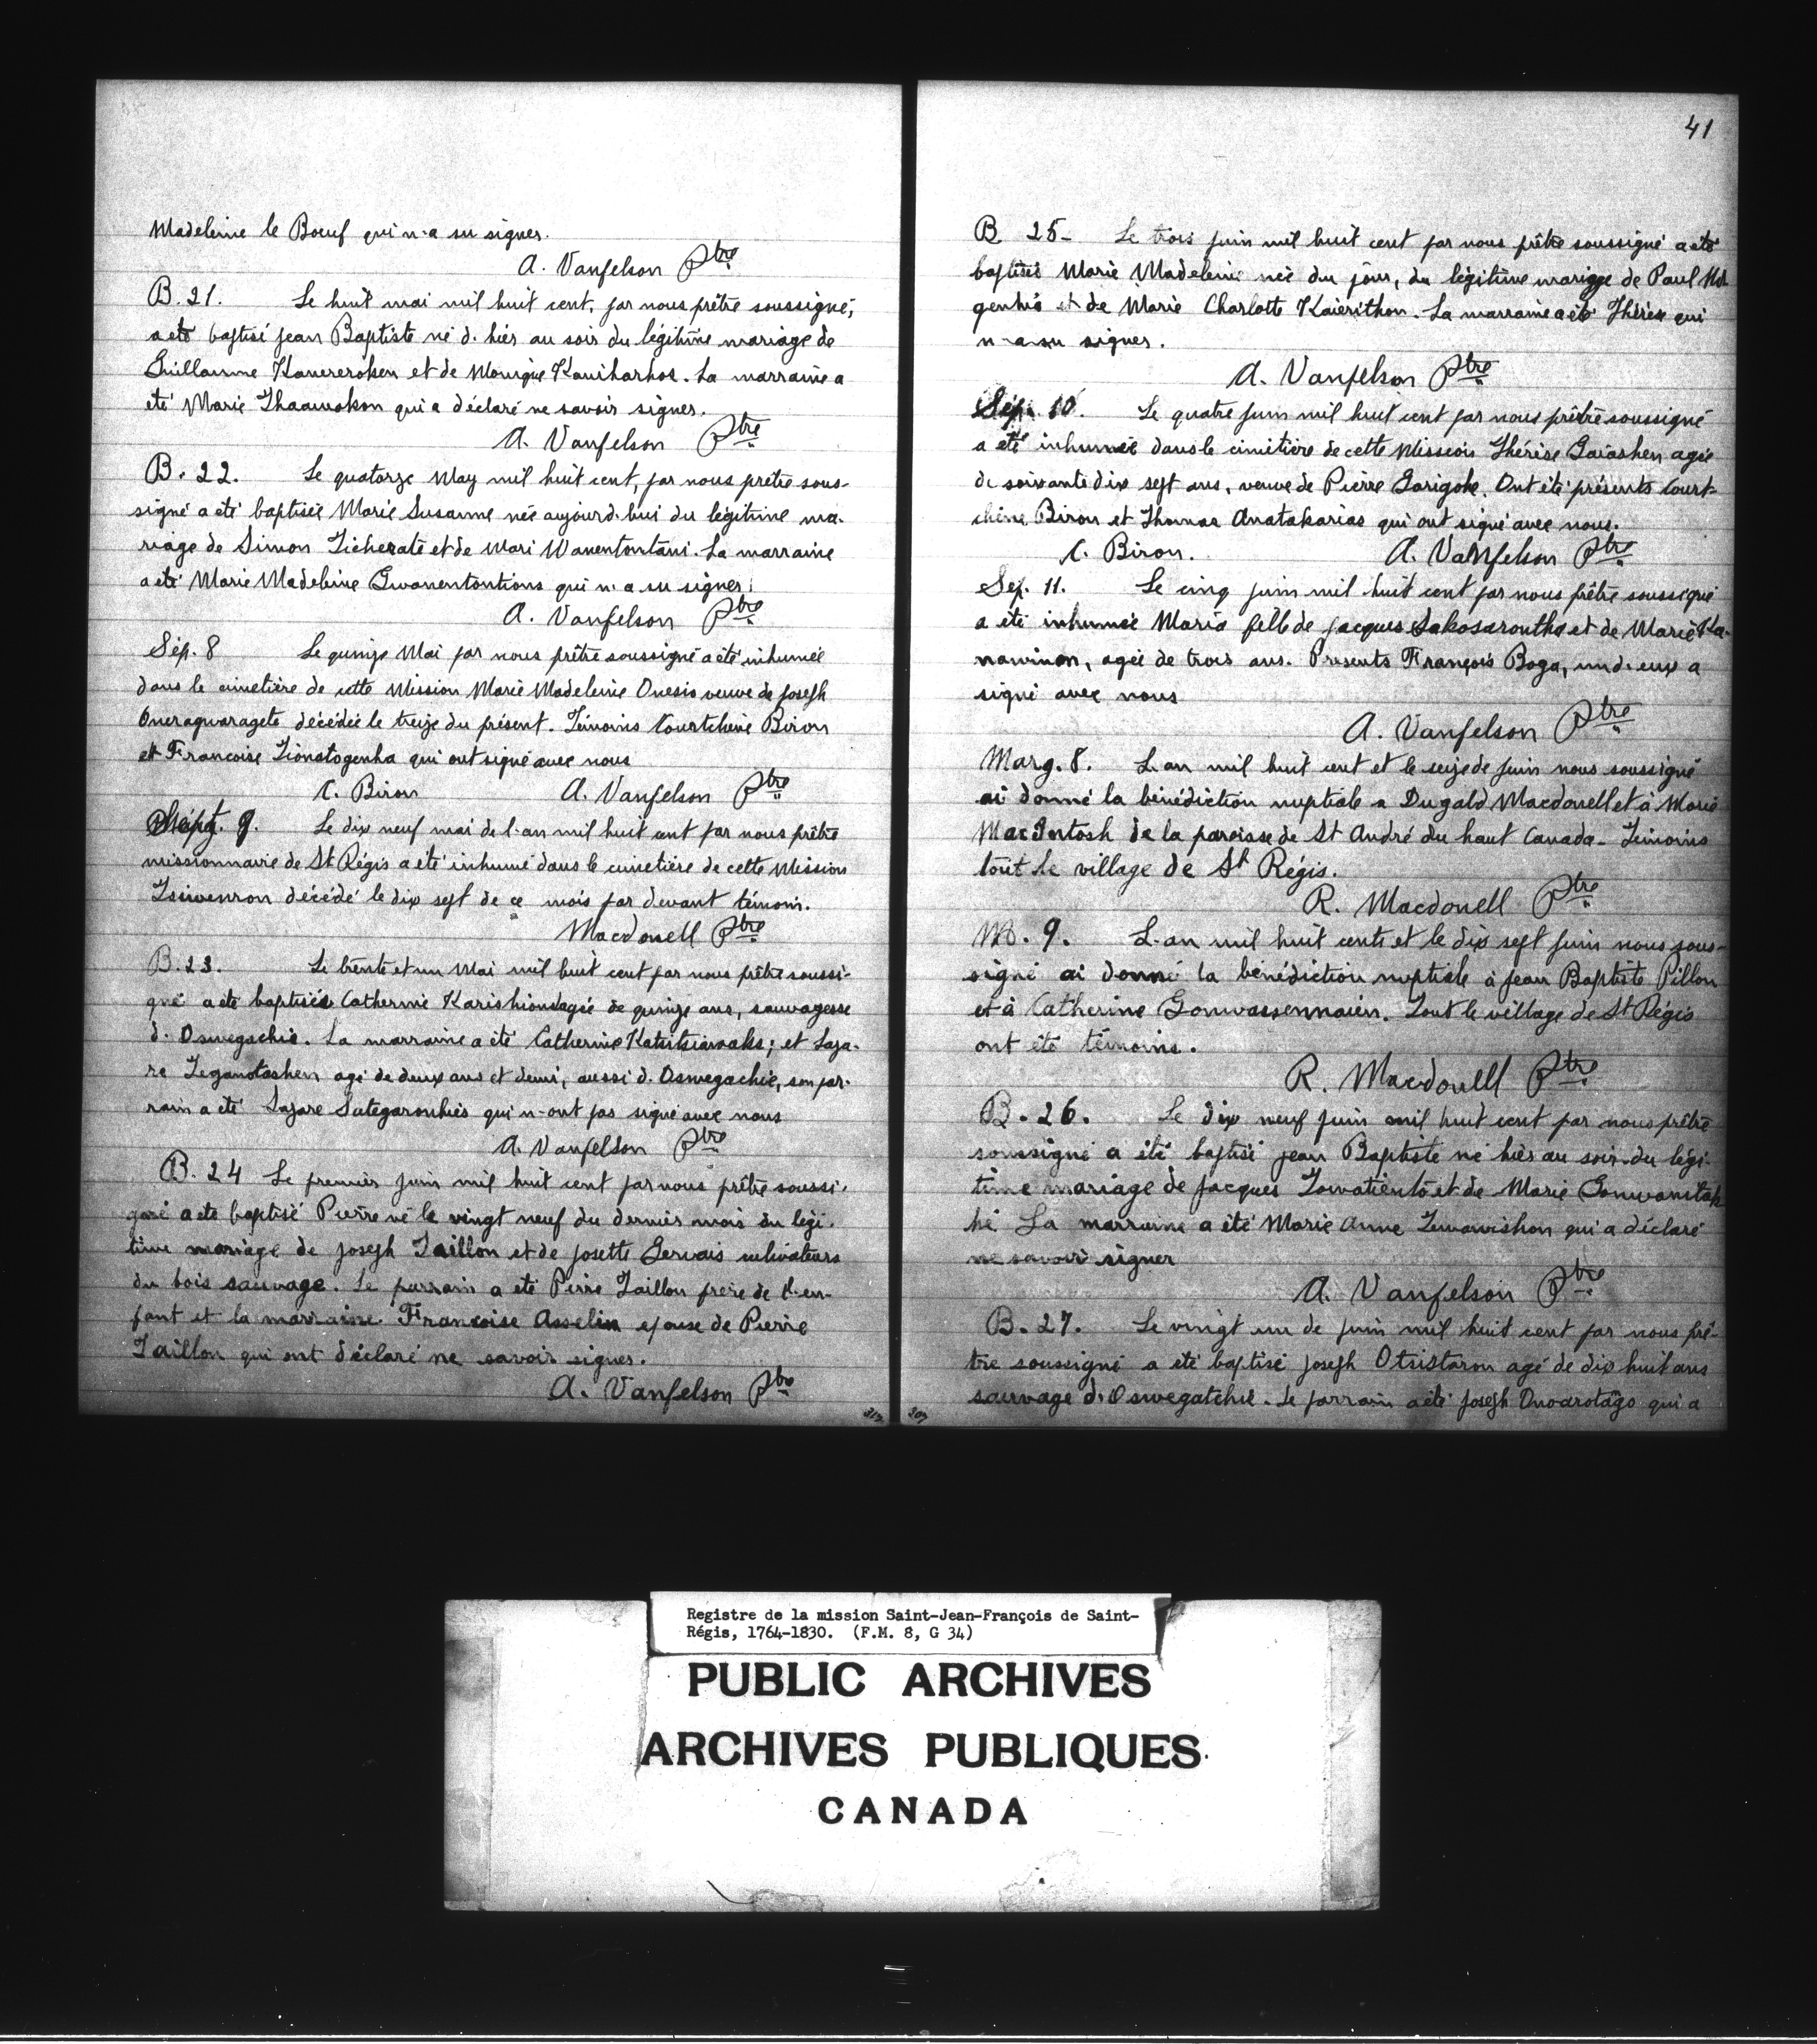 Madeleine le Boeuf qui n'a su signer.
A. Vanfelson Ptre
B. 21. Le huit mai mil huit cent, par nous prêtre soussigné,
a été baptisé jean Baptiste né d'hier au soir du légitime mariage de
Guillaume Kanereroken et de Monique Kaniharhos. La marraine a
eté Marie Thaawokon qui a déclaré ne savoir signer.
A. Vanfelson Ptre
B. 22. Le quatorze May mil huit cent, par nous prêtre sous-
signé a été baptisée Marie Susanne née aujourd'hui du légitime ma-
riage de Simon Ticheraté et de Mari Wanentontani. La marraine
a été Marie Madeleine Gwanentontions qui n'a su signer.
A. Vanfelson Ptre
Sép. 8 Le quinze Mai par nous prêtre soussigné a été inhumée
dans le cimetière de cette Mission Marie Madeleine Onesio veuve de joseph
Oneraqwaragete décédée le treize du présent. Témoins Courtchene Biron
et Francoise Tionatogenha qui ont signé avec nous
C. Biron A. Vanfelson Ptre
Sépt. 9. Le dix neuf mai de l'an mil huit cent par nous prêtre
missionnaire de St Régis a été inhumé dans le cimetière de cette Mission
Tsiwenron décédé le dix sept de ce mois par devant témoin.
Macdonell Ptre
B. 23. Le trente et un Mai mil huit cent par nous prêtre soussi-
gné a été baptisée Catherine Karishions agée de quinze ans, sauvagesse
d'Oswegachie. La marraine a été Catherine Katsitsiawaks; et Laza-
re Teganotashen agé de deux ans et demi, aussi d'Oswegachie, son par-
rain a été Lazare Sategaronhies qui n'ont pas signé avec nous
A. Vanfelson Ptre
B. 24 Le premier juin mil huit cent par nous prêtre soussi-
gné a été baptisé Pierre né le vingt neuf du dernier mois du légi-
time mariage de joseph Taillon et de josette Gervais cultivateurs
du bois sauvage. Le parrain a été Pierre Taillon frere de l'en-
fant et la marraine Francoise Asselin epouse de Pierre
Taillon qui ont déclaré ne savoir signer.
A. Vanfelson Ptre
41
B. 25- Le trois juin mil huit cent par nous prêtre soussigné a été
baptisée Marie Madeleine née du jour, du légitime mariage de Paul
genhió et de Marie Charlotte Kaierithon. La marraine a été Thérèse qui
n'a su signer.
A. Vanfelson Ptre
Sép. 10. Le quatre juin mil huit cent par nous prêtre soussigné
a été inhumée dans le cimetière de cette Mission Thérèse Gaiashen agée
de soixante dix sept ans, veuve de Pierre Garigohe. Ont été présents Court-
chène Biron et Thomas Anatakarias qui ont signé avec nous.
C. Biron. A. Vanfelson Ptre
Sep. 11. Le cinq juin mil huit cent par nous prêtre soussigné
a été inhumée Maria fille de jacques Sakosarontha et de Marie Ka-
nawinon, agée de trois ans. Presents François Boga, un d'eux a
signé avec nous
A. Vanfelson Ptre
Marg. 8. L'an mil huit cent et le seize de juin nous soussigné
ai donné la bénédiction nuptiale a Dugald Macdonell et à Marie
MacIntosh de la paroisse de St André du haut Canada - Temoins
tout le village de St Régis.
R. Macdonell Ptre
M. 9. L'an mil huit cents et le dix sept juin nous sous-
signé ai donné la bénédiction nuptiale à jean Baptiste Pillon
et à Catherine Gonwassennaien. Tout le village de St Régis
ont été témoins.
R. Macdonell Ptre
B. 26. Le dix neuf juin mil huit cent par nous prêtre
soussigné a été baptisé jean Baptiste né hier au soir du légi-
time mariage de jacques Towatiento et de Marie Gonwanitak
hé La marraine a été Marie Anne Tewawishon qui a déclaré
ne savoir signer
A. Vanfelson Ptre
B. 27. Le vingt un de juin mil huit cent par nous prê-
tre soussigné a été baptisé joseph Otsistaron agé de dix huit ans
sauvage d'Oswegatchie. Le parrain a été joseph Onoarotago qui a
Registre de la mission Saint-Jean-François de Saint-
Régis, 1764-1830. (F.M. 8, G 34)
PUBLIC ARCHIVES
ARCHIVES PUBLIQUES
CANADA